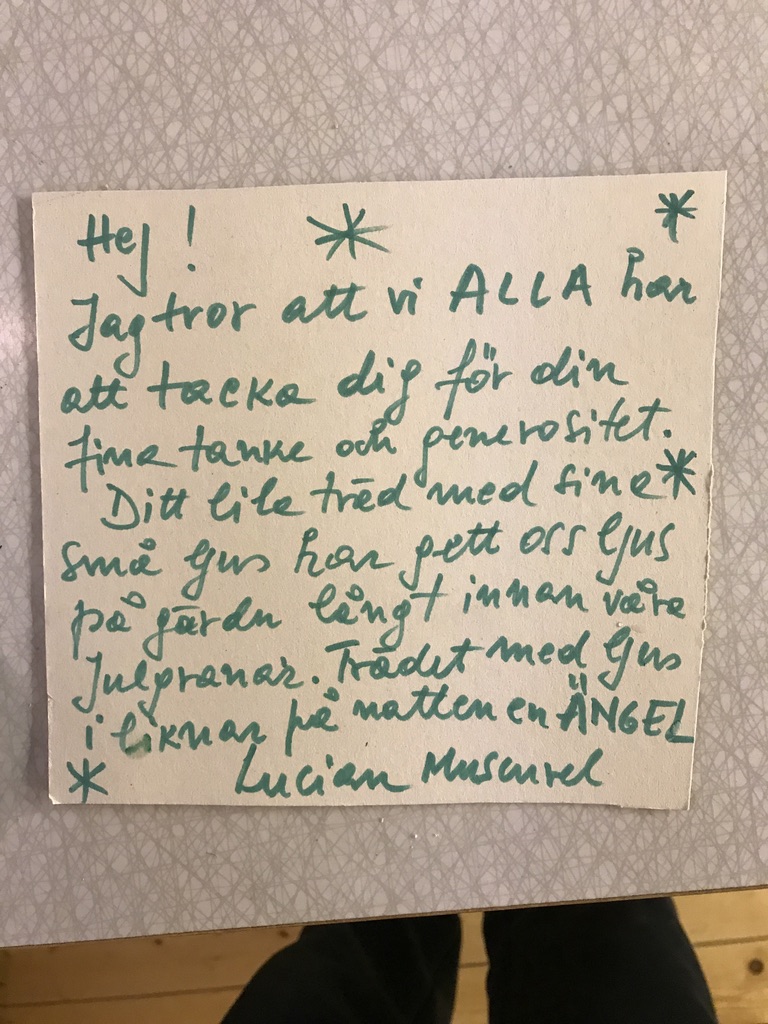 Hej!
Jag tror att vi ALLA har
att tacka dig för din
fina tanke och generositet.
Ditt lile träd med sina
små ljus har gett oss ljus
på gårdn långt innan våra
Julgranar. Trädet med ljus
i liknar på natten en ÄNGEL
Lucian